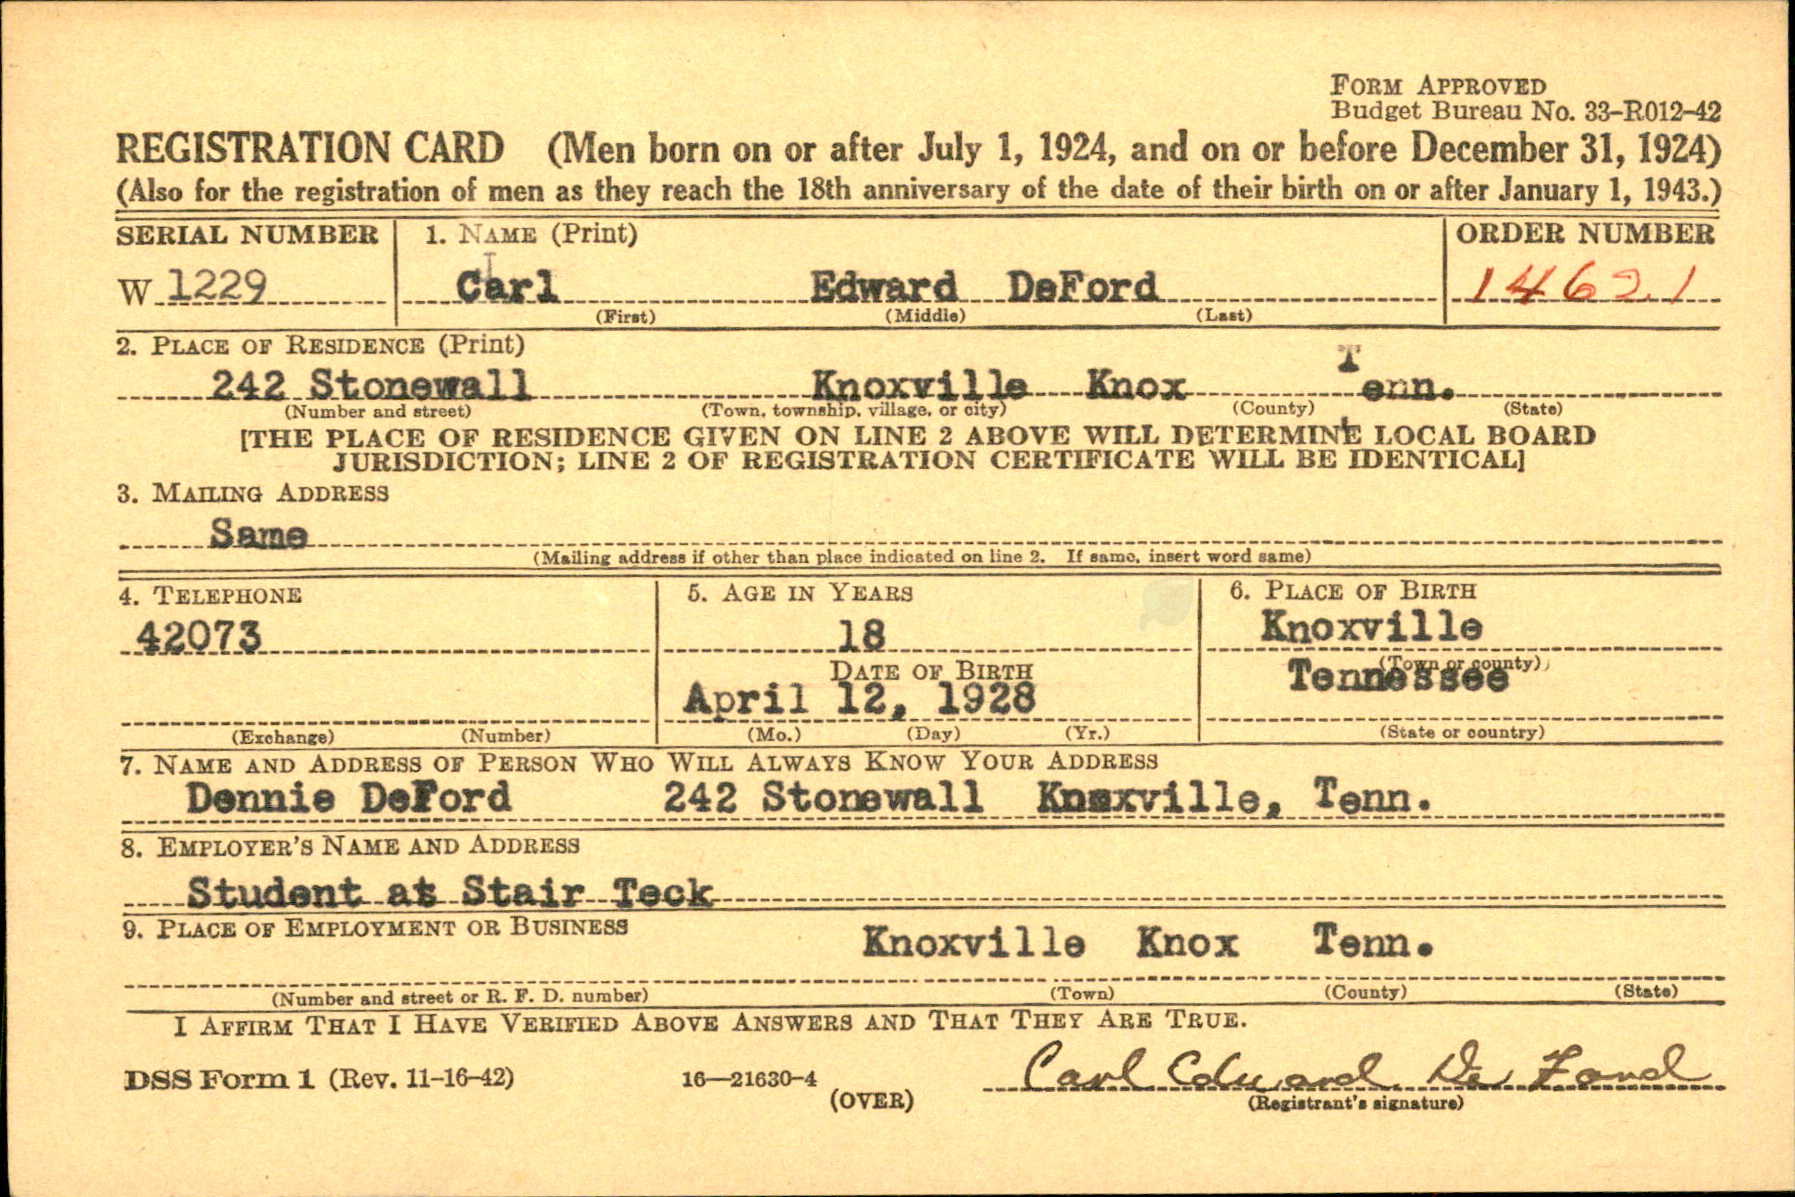 FORM APPROVED
Budget Bureau No. 33-R012-42
REGISTRATION CARD (Men born on or after July 1, 1924, and on or before December 31, 1924)
(Also for the registration of men as they reach the 18th anniversary of the date of their birth on or after January 1, 1943.)
SERIAL NUMBER 1. NAME (Print) ORDER NUMBER
W 1229 Carl Edward DeFord 14621
(First) (Middle) (Last)
2. PLACE OF RESIDENCE (Print)
242 Stonewall Knoxville Knox Tenn.
(Number and street) (Town, township, village, or city) (County) (State)
[THE PLACE OF RESIDENCE GIVEN ON LINE 2 ABOVE WILL DETERMINE LOCAL BOARD
JURISDICTION; LINE 2 OF REGISTRATION CERTIFICATE WILL BE IDENTICAL]
3. MAILING ADDRESS
Same
(Mailing address if other than place indicated on line 2. If same, insert word same)
4. TELEPHONE 5. AGE IN YEARS 6. PLACE OF BIRTH
42073 18 Knoxville
(Town or county)
DATE OF BIRTH Tennessee
April 12, 1928
(Exchange) (Number) (Mo.) (Day) (Yr.) (State or country)
7. NAME AND ADDRESS OF PERSON WHO WILL ALWAYS KNOW YOUR ADDRESS
Dennie DeFord 242 Stonewall Knoxville, Tenn.
8. EMPLOYER'S NAME AND ADDRESS
Student at Stair Teck
9. PLACE OF EMPLOYMENT OR BUSINESS
Knoxville Knox Tenn.
(Number and street or R. F. D. number) (Town) (County) (State)
I AFFIRM THAT I HAVE VERIFIED ABOVE ANSWERS AND THAT THEY ARE TRUE.
DSS Form 1 (Rev. 11-16-42) 16—21630-4 Carl Edward De Ford
(OVER) (Registrant's signature)